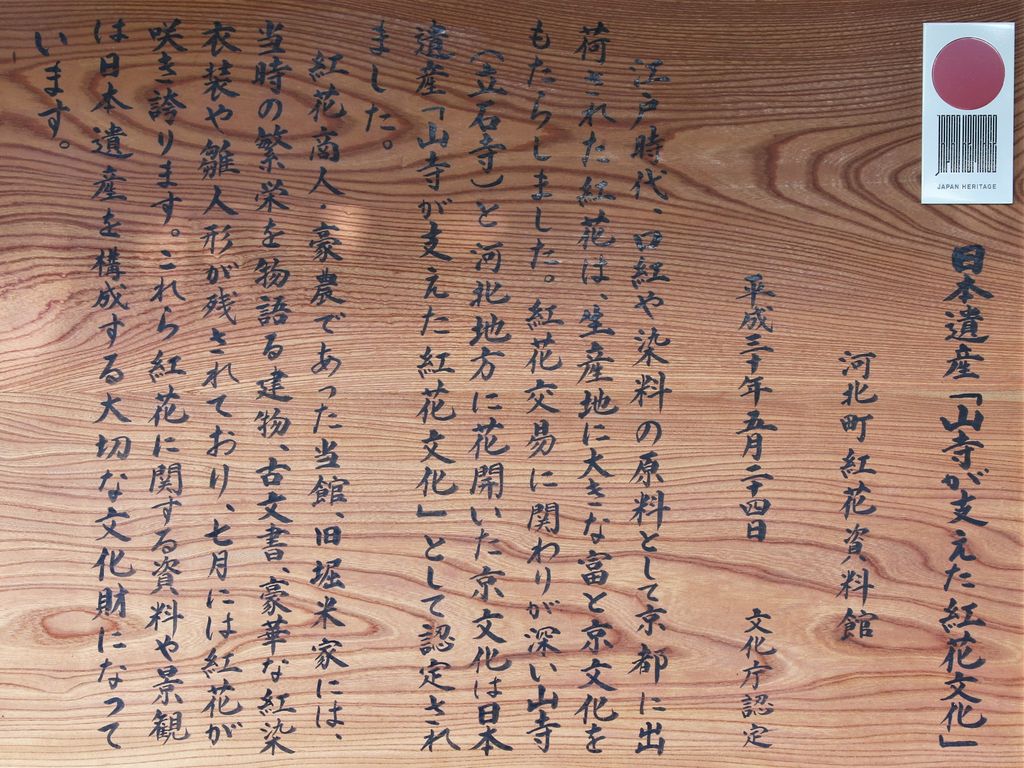 JAPAN HERITAGE
JAPAN HERITAGE
日本遺産「山寺が支えた紅花文化」
河北町紅花資料館
平成三十年五月二十四日　文化庁認定
江戸時代、口紅や染料の原料として京都に出
荷された紅花は、生産地に大きな富と京文化を
もたらしました。紅花交易に関わりが深い山寺
（立石寺）と河北地方に花開いた京文化は日本
遺産「山寺が支えた紅花文化」として認定され
ました。
紅花商人・豪農であった当館、旧堀米家には、
当時の繁栄を物語る建物、古文書、豪華な紅染
衣装や雛人形が残されており、七月には紅花が
咲き誇ります。これら紅花に関する資料や景観
は日本遺産を構成する大切な文化財になって
います。